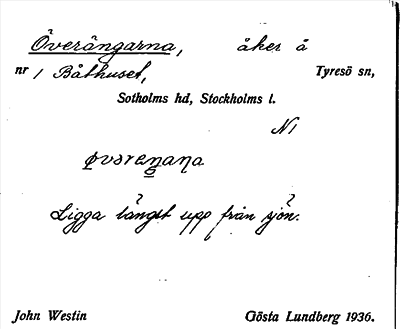 Överängarna, åker å
nr 1 Båthuset, Tyresö sn,
Sotholms hd, Stockholms l.
N1
Ligga längst upp från sjön.
John Westin Gösta Lundberg 1936.